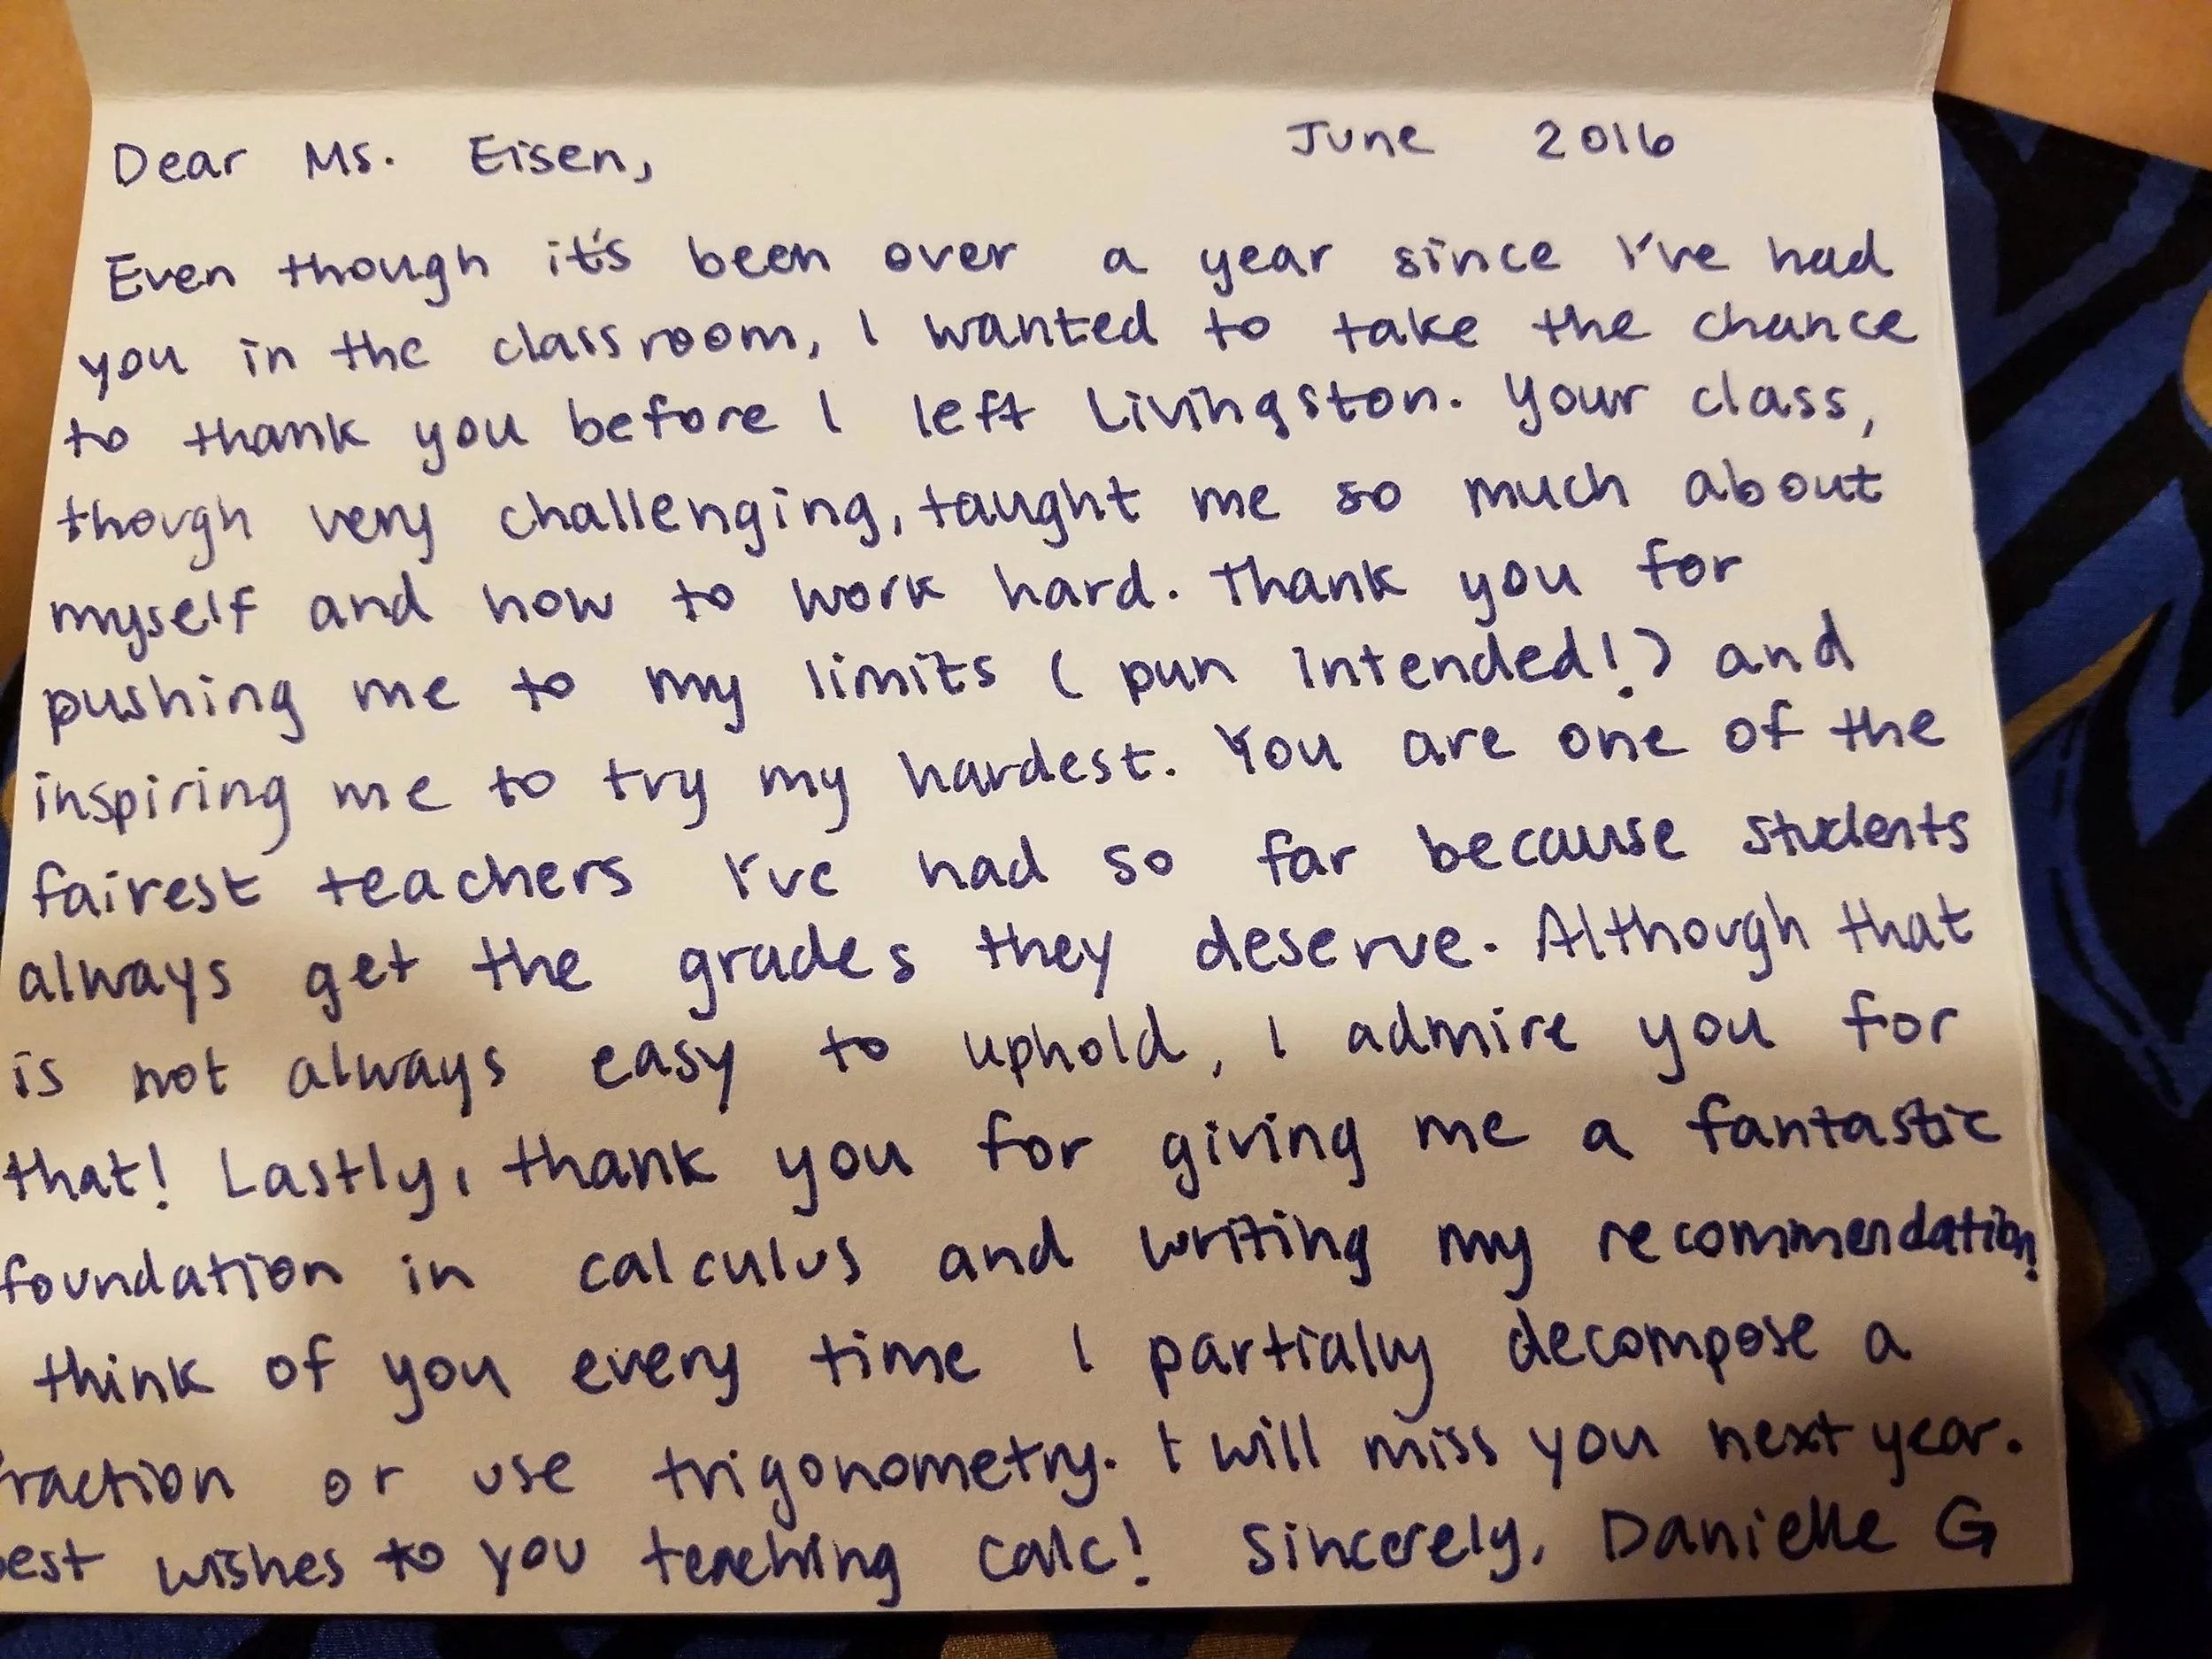 Dear Ms. Eisen, June 2016
Even though it's been over a year since I've had
you in the classroom, I wanted to take the chance
to thank you before I left Livingston. Your class,
though very challenging, taught me so much about
myself and how to work hard. Thank you for
pushing me to my limits (pun intended!) and
inspiring me to try my hardest. You are one of the
fairest teachers I've had so far because students
always get the grades they deserve. Although that
is not always easy to uphold, I admire you for
that! Lastly, thank you for giving me a fantastic
foundation in calculus and writing my recommendation!
think of you every time I partially decompose a
raction or use trigonometry. I will miss you next year.
est wishes to you teaching calc! Sincerely, Danielle G